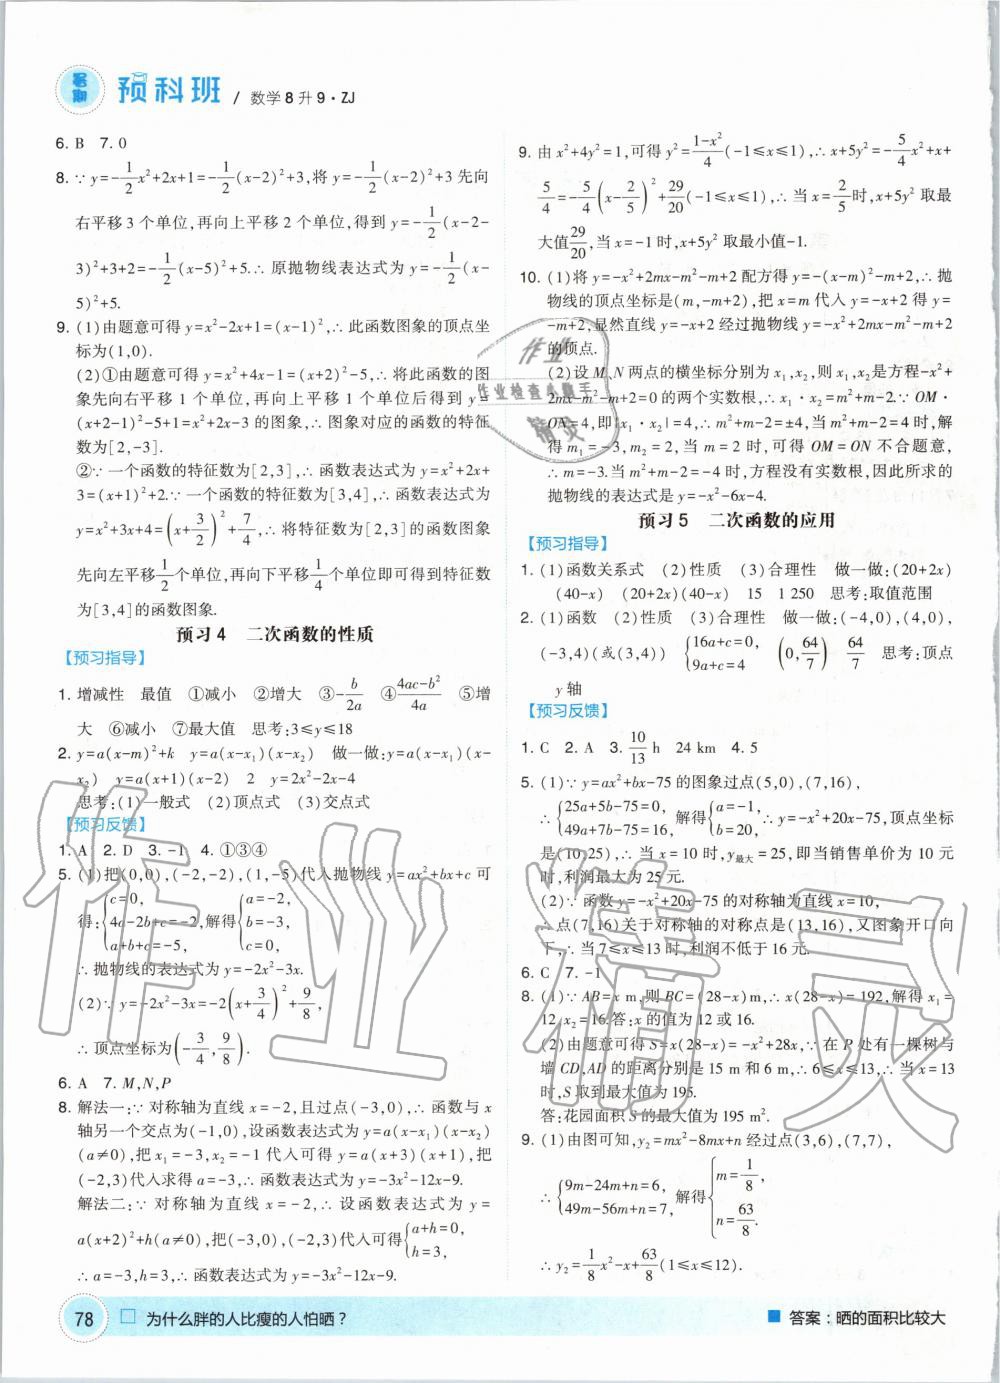 暑期 预科班 / 数学8升9·ZJ
6. B  7. 0
8. ∵ y=-1/2x²+2x+1=-1/2(x-2)²+3,将 y=-1/2(x-2)²+3 先向
右平移 3 个单位,再向上平移 2 个单位,得到 y=-1/2(x-2-
3)²+3+2=-1/2(x-5)²+5.∴ 原抛物线表达式为 y=-1/2(x-
5)²+5.
9. (1)由题意可得 y=x²-2x+1=(x-1)²,∴ 此函数图象的顶点坐
标为(1,0).
(2)①由题意可得 y=x²+4x-1=(x+2)²-5,∴ 将此函数的图
象先向右平移 1 个单位,再向上平移 1 个单位后得到 y=
(x+2-1)²-5+1=x²+2x-3 的图象,∴ 图象对应的函数的特征
数为[2,-3].
②∵ 一个函数的特征数为[2,3],∴ 函数表达式为 y=x²+2x+
3=(x+1)²+2.∵ 一个函数的特征数为[3,4],∴ 函数表达式为
y=x²+3x+4=(x+3/2)²+7/4,∴ 将特征数为[2,3]的函数图象
先向左平移1/2个单位,再向下平移1/4个单位即可得到特征数
为[3,4]的函数图象.
预习 4  二次函数的性质
【预习指导】
1. 增减性  最值  ①减小  ②增大  ③-b/2a  ④(4ac-b²)/4a  ⑤增
大  ⑥减小  ⑦最大值  思考:3≤y≤18
2. y=a(x-m)²+k  y=a(x-x₁)(x-x₂)  做一做:y=a(x-x₁)(x-
x₂)  y=a(x+1)(x-2)  2  y=2x²-2x-4
思考:(1)一般式  (2)顶点式  (3)交点式
【预习反馈】
1. A  2. D  3. -1  4. ①③④
5. (1)把(0,0),(-2,-2),(1,-5)代入抛物线 y=ax²+bx+c 可
得:{c=0, 4a-2b+c=-2, a+b+c=-5, 解得{a=-2, b=-3, c=0.
∴ 抛物线的表达式为 y=-2x²-3x.
(2)∵ y=-2x²-3x=-2(x+3/4)²+9/8,
∴ 顶点坐标为(-3/4,9/8).
6. A  7. M,N,P
8. 解法一:∵ 对称轴为直线 x=-2,且过点(-3,0),∴ 函数与 x
轴另一个交点为(-1,0),设函数表达式为 y=a(x-x₁)(x-x₂)
(a≠0),把 x₁=-3,x₂=-1 代入可得 y=a(x+3)(x+1),把
(-2,3)代入求得 a=-3,∴ 函数表达式为 y=-3x²-12x-9.
解法二:∵ 对称轴为直线 x=-2,∴ 设函数表达式为 y=
a(x+2)²+h(a≠0),把(-3,0),(-2,3)代入可得{a+h=0, h=3,
∴ a=-3,h=3,∴ 函数表达式为 y=-3x²-12x-9.
9. 由 x²+4y²=1,可得 y²=(1-x²)/4(-1≤x≤1),∴ x+5y²=-5/4x²+x+
5/4=-5/4(x-2/5)²+29/20(-1≤x≤1),∴ 当 x=2/5时,x+5y² 取最
大值29/20,当 x=-1 时,x+5y² 取最小值-1.
10. (1)将 y=-x²+2mx-m²-m+2 配方得 y=-(x-m)²-m+2,∴ 抛
物线的顶点坐标是(m,-m+2),把 x=m 代入 y=-x+2 得 y=
-m+2,显然直线 y=-x+2 经过抛物线 y=-x²+2mx-m²-m+2
的顶点.
(2)设 M、N 两点的横坐标分别为 x₁,x₂,则 x₁,x₂是方程-x²+
2mx-m²-m+2=0 的两个实数根,∴ x₁·x₂=m²+m-2.∵ OM·
ON=4,即|x₁·x₂|=4,∴ m²+m-2=±4,当 m²+m-2=4 时,解
得 m₁=-3,m₂=2,当 m=2 时,可得 OM=ON 不合题意,
∴ m=-3.当 m²+m-2=-4 时,方程没有实数根,因此所求的
抛物线的表达式是 y=-x²-6x-4.
预习 5  二次函数的应用
【预习指导】
1. (1)函数关系式  (2)性质  (3)合理性  做一做:(20+2x)
(40-x)  (20+2x)(40-x)  15  1 250  思考:取值范围
2. (1)函数  (2)性质  (3)合理性  做一做:(-4,0),(4,0),
(-3,4)(或(3,4))  {16a+c=0, 9a+c=4  (0,64/7)  64/7  思考:顶点
y 轴
【预习反馈】
1. C  2. A  3. 10/13 h  24 km  4. 5
5. (1)∵ y=ax²+bx-75 的图象过点(5,0),(7,16),
∴ {25a+5b-75=0, 49a+7b-75=16, 解得{a=-1, b=20, ∴ y=-x²+20x-75,顶点坐标
是(10,25),∴ 当 x=10 时,y最大=25,即当销售单价为 10 元
时,利润最大为 25 元.
(2)∵ 函数 y=-x²+20x-75 的对称轴为直线 x=10,
∴ 点(7,16)关于对称轴的对称点是(13,16),又图象开口向
下,∴ 当 7≤x≤13 时,利润不低于 16 元.
6. C  7. -1
8. (1)∵ AB=x m,则 BC=(28-x)m,∴ x(28-x)=192,解得 x₁=
12,x₂=16.答:x 的值为 12 或 16.
(2)由题意可得 S=x(28-x)=-x²+28x,∵ 在 P 处有一棵树与
墙 CD,AD 的距离分别是 15 m 和 6 m,∴ 6≤x≤13,∴ 当 x=13
时,S 取到最大值为 195.
答:花园面积 S 的最大值为 195 m².
9. (1)由图可知,y₂=mx²-8mx+n 经过点(3,6),(7,7),
∴ {9m-24m+n=6, 49m-56m+n=7, 解得{m=1/8, n=63/8.
∴ y₂=1/8x²-x+63/8(1≤x≤12).
作业
作业检查小助手
精灵
作业精灵
78 □ 为什么胖的人比瘦的人怕晒?
■ 答案:晒的面积比较大